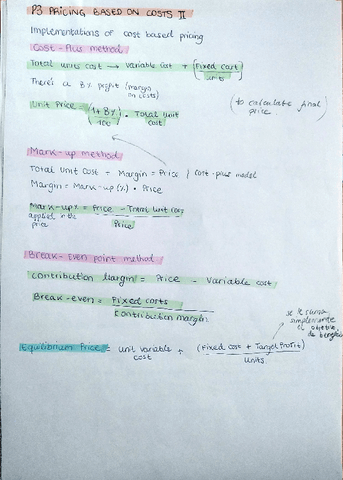 P3 PRICING BASED ON COSTS II
Implementations of cost based pricing
Cost-Plus method
Total units cost → Variable cost + (Fixed cost / units)
There's a B% profit (margin on costs)
Unit Price = (1+B% / 100) · Total unit cost
(to calculate final price)
Mark-up method
Total Unit Cost + Margin = Price } cost-plus model
Margin = Mark-up (%) · Price
Mark-up% applied in the price = Price - Total unit cost / Price
Break-Even point method
Contribution Margin = Price - Variable cost
Break-even = Fixed costs / Contribution margin
se le suma simplemente el objetivo de beneficio
Equilibrium Price = unit variable cost + (Fixed cost + Target Profit) / Units